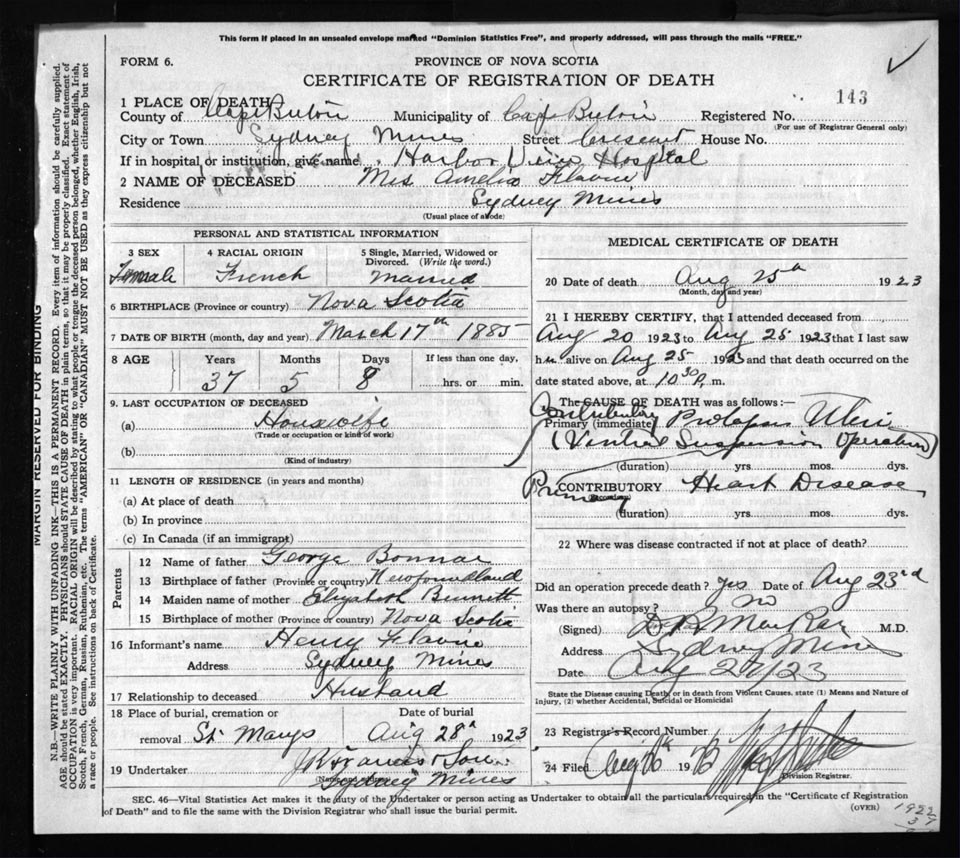 This form if placed in an unsealed envelope marked "Dominion Statistics Free", and properly addressed, will pass through the mails "FREE."
FORM 6.
PROVINCE OF NOVA SCOTIA
CERTIFICATE OF REGISTRATION OF DEATH
143
1 PLACE OF DEATH
County of Cape Breton Municipality of Cape Breton Registered No.
(For use of Registrar General only)
City or Town Sydney Mines Street Crescent House No.
If in hospital or institution, give name Harbor View Hospital
2 NAME OF DECEASED Mrs Amelia Flavin
Residence Sydney Mines
(Usual place of abode)
PERSONAL AND STATISTICAL INFORMATION
3 SEX 4 RACIAL ORIGIN 5 Single, Married, Widowed or Divorced. (Write the word.)
Female French Married
6 BIRTHPLACE (Province or country) Nova Scotia
7 DATE OF BIRTH (month, day and year) March 17th 1885
8 AGE Years Months Days If less than one day,
37 5 8 hrs. or min.
9. LAST OCCUPATION OF DECEASED
(a) Housewife
(Trade or occupation or kind of work)
(b)
(Kind of industry)
11 LENGTH OF RESIDENCE (in years and months)
(a) At place of death
(b) In province
(c) In Canada (if an immigrant)
Parents
12 Name of father George Bonnar
13 Birthplace of father (Province or country) Newfoundland
14 Maiden name of mother Elizabeth Bennett
15 Birthplace of mother (Province or country) Nova Scotia
16 Informant's name Henry Flavin
Address Sydney Mines
17 Relationship to deceased Husband
18 Place of burial, cremation or removal St Marys Date of burial Aug 28th 1923
19 Undertaker Francis & Son
Sydney Mines
MEDICAL CERTIFICATE OF DEATH
20 Date of death Aug 25th 1923
(Month, day and year)
21 I HEREBY CERTIFY, that I attended deceased from
Aug 20 1923 to Aug 25 1923 that I last saw
her alive on Aug 25 1923 and that death occurred on the
date stated above, at 10 30 P. m.
The CAUSE OF DEATH was as follows:—
Contributory
Primary (immediate) Prolapsus Uteri
(Ventral Suspension Operation)
(duration) yrs. mos. dys.
Primary
CONTRIBUTORY Heart Disease
(Secondary)
(duration) yrs. mos. dys.
22 Where was disease contracted if not at place of death?
Did an operation precede death? yes Date of Aug 23rd
Was there an autopsy? no
(Signed) M.D.
Address Sydney Mines
Date Aug 27/23
State the Disease causing Death, or in death from Violent Causes, state (1) Means and Nature of
Injury, (2) whether Accidental, Suicidal or Homicidal
23 Registrar's Record Number
24 Filed Aug 19
Division Registrar.
SEC. 46—Vital Statistics Act makes it the duty of the Undertaker or person acting as Undertaker to obtain all the particulars required in the "Certificate of Registration
of Death" and to file the same with the Division Registrar who shall issue the burial permit. (OVER)
1922
37
MARGIN RESERVED FOR BINDING
N.B.—WRITE PLAINLY WITH UNFADING INK—THIS IS A PERMANENT RECORD. Every item of information should be carefully supplied.
AGE should be stated EXACTLY. PHYSICIANS should STATE CAUSE OF DEATH in plain terms, so that it may be properly classified. Exact statement of
OCCUPATION is very important. RACIAL ORIGIN will be described by stating to what people or tongue the deceased person belonged, whether English, Irish,
Scotch, French, German, Russian, Ruthenian, etc. The terms "AMERICAN" or "CANADIAN" MUST NOT BE USED as they express citizenship but not
a race or people. See instructions on back of Certificate.